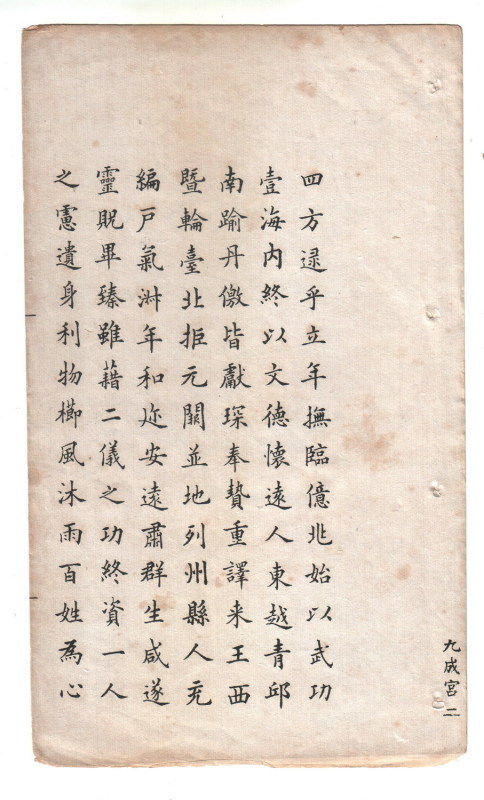 四方逯乎立年撫臨億兆始以武功
壹海内終以文德懷遠人東越青邱
南踰丹儌皆獻琛奉贄重譯来王西
暨輪臺北拒元闕並地列州縣人充
編戸氣淋年和迩安遠肅群生咸遂
靈貺畢臻雖藉二儀之功終資一人
之慮遺身利物櫛風沐雨百姓為心
九成宮二